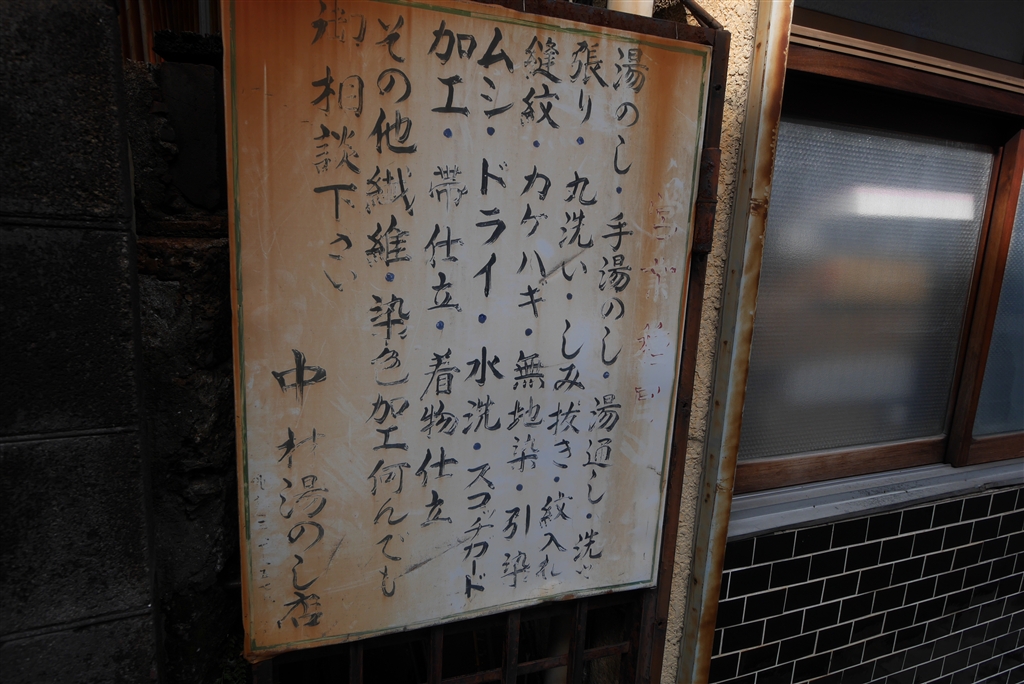 湯のし・手湯のし・湯通し・洗い
張り・丸洗い・しみ抜き・紋入れ
縫紋・カケハギ・無地染・引染
ムシ・ドライ・水洗・スコッチガード
加工・帯仕立・着物仕立
その他繊維・染色加工何んでも
御相談下さい
中村湯のし店